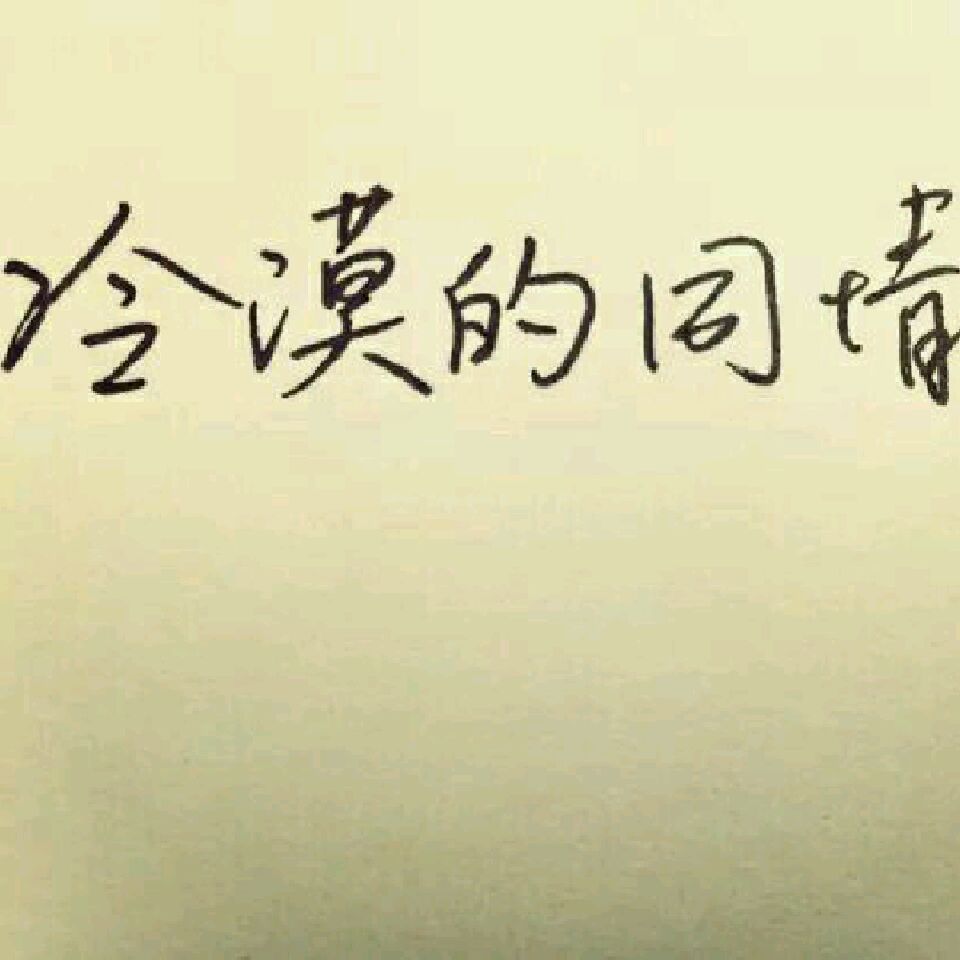 冷漠的同情